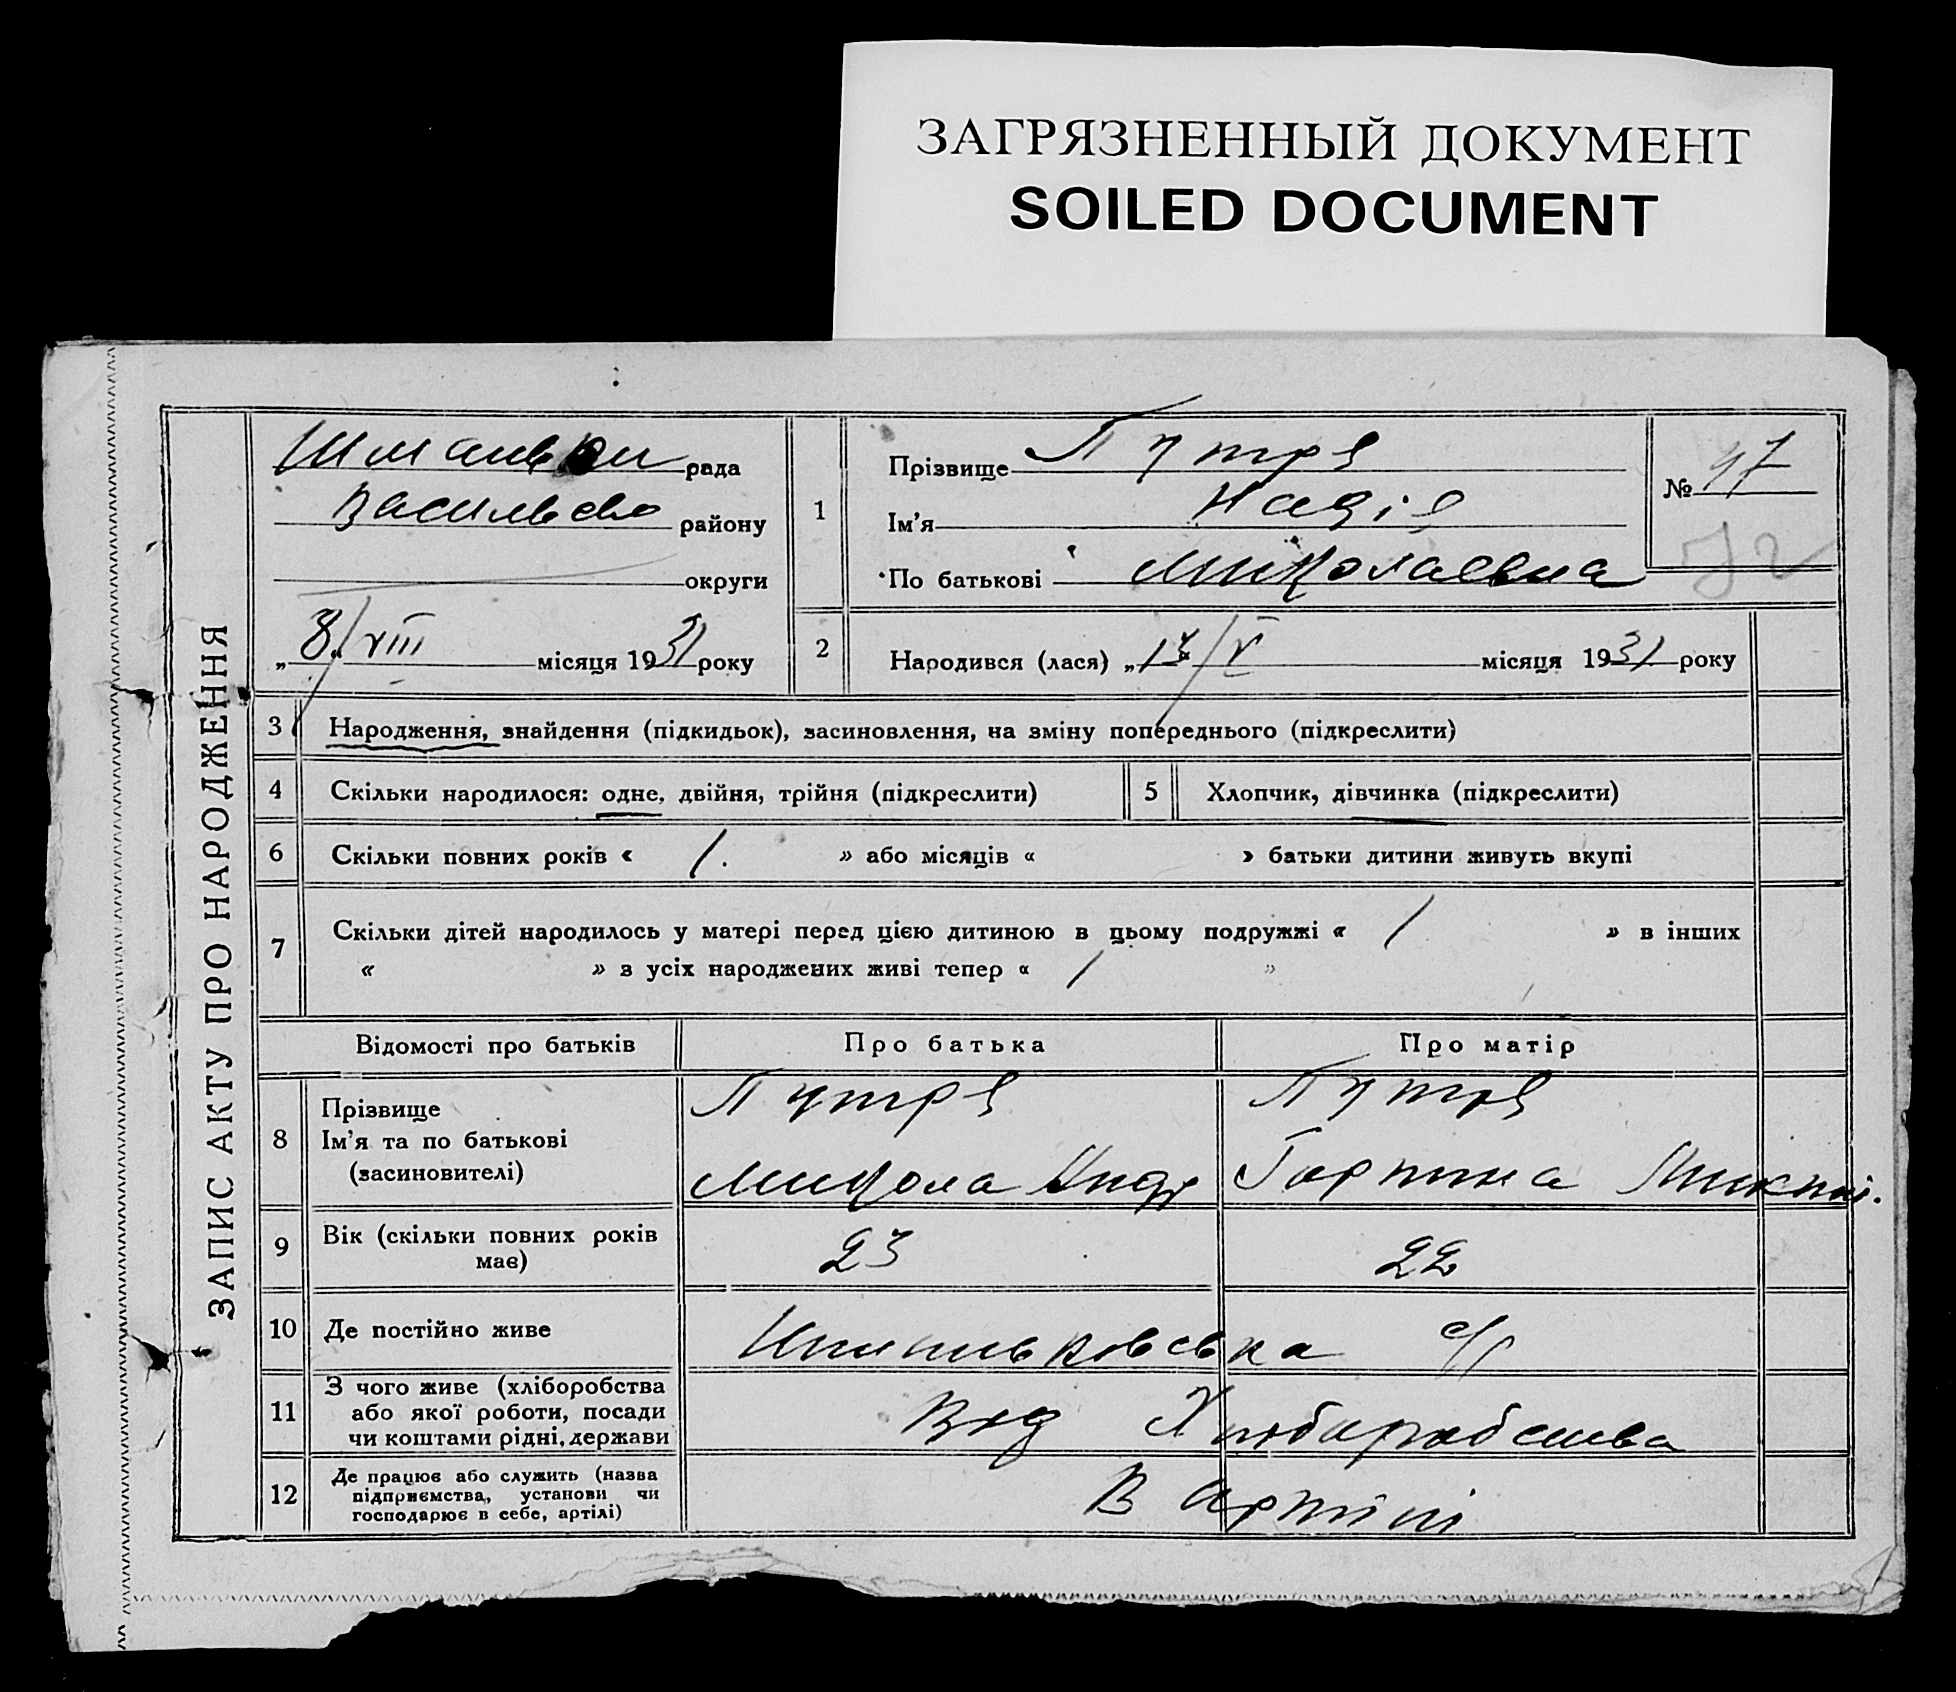 ЗАГРЯЗНЕННЫЙ ДОКУМЕНТ
SOILED DOCUMENT
ЗАПИС АКТУ ПРО НАРОДЖЕННЯ
рада
Васильево району
округи
„8/VIII місяця 1931 року
1
Прізвище Путря
Ім'я Надія
По батькові Миколаевна
№ 47
2 Народився (лася) „13/V місяця 1931 року
3 Народження, знайдення (підкидьок), засиновлення, на зміну попереднього (підкреслити)
4 Скільки народилося: одне, двійня, трійня (підкреслити) 5 Хлопчик, дівчинка (підкреслити)
6 Скільки повних років « 1. » або місяців « » батьки дитини живуть вкупі
7 Скільки дітей народилось у матері перед цією дитиною в цьому подружжі « 1 » в інших
« » з усіх народжених живі тепер « 1 »
Відомості про батьків Про батька Про матір
8 Прізвище
Ім'я та по батькові
(засиновителі)
Путря
Микола Андр
Путря
Горпина
9 Вік (скільки повних років
має)
23 22
10 Де постійно живе с/р
11 З чого живе (хліборобства
або якої роботи, посади
чи коштами рідні, держави
Від Хліборобства
12 Де працює або служить (назва
підприємства, установи чи
господарює в себе, артілі)
В Артілі